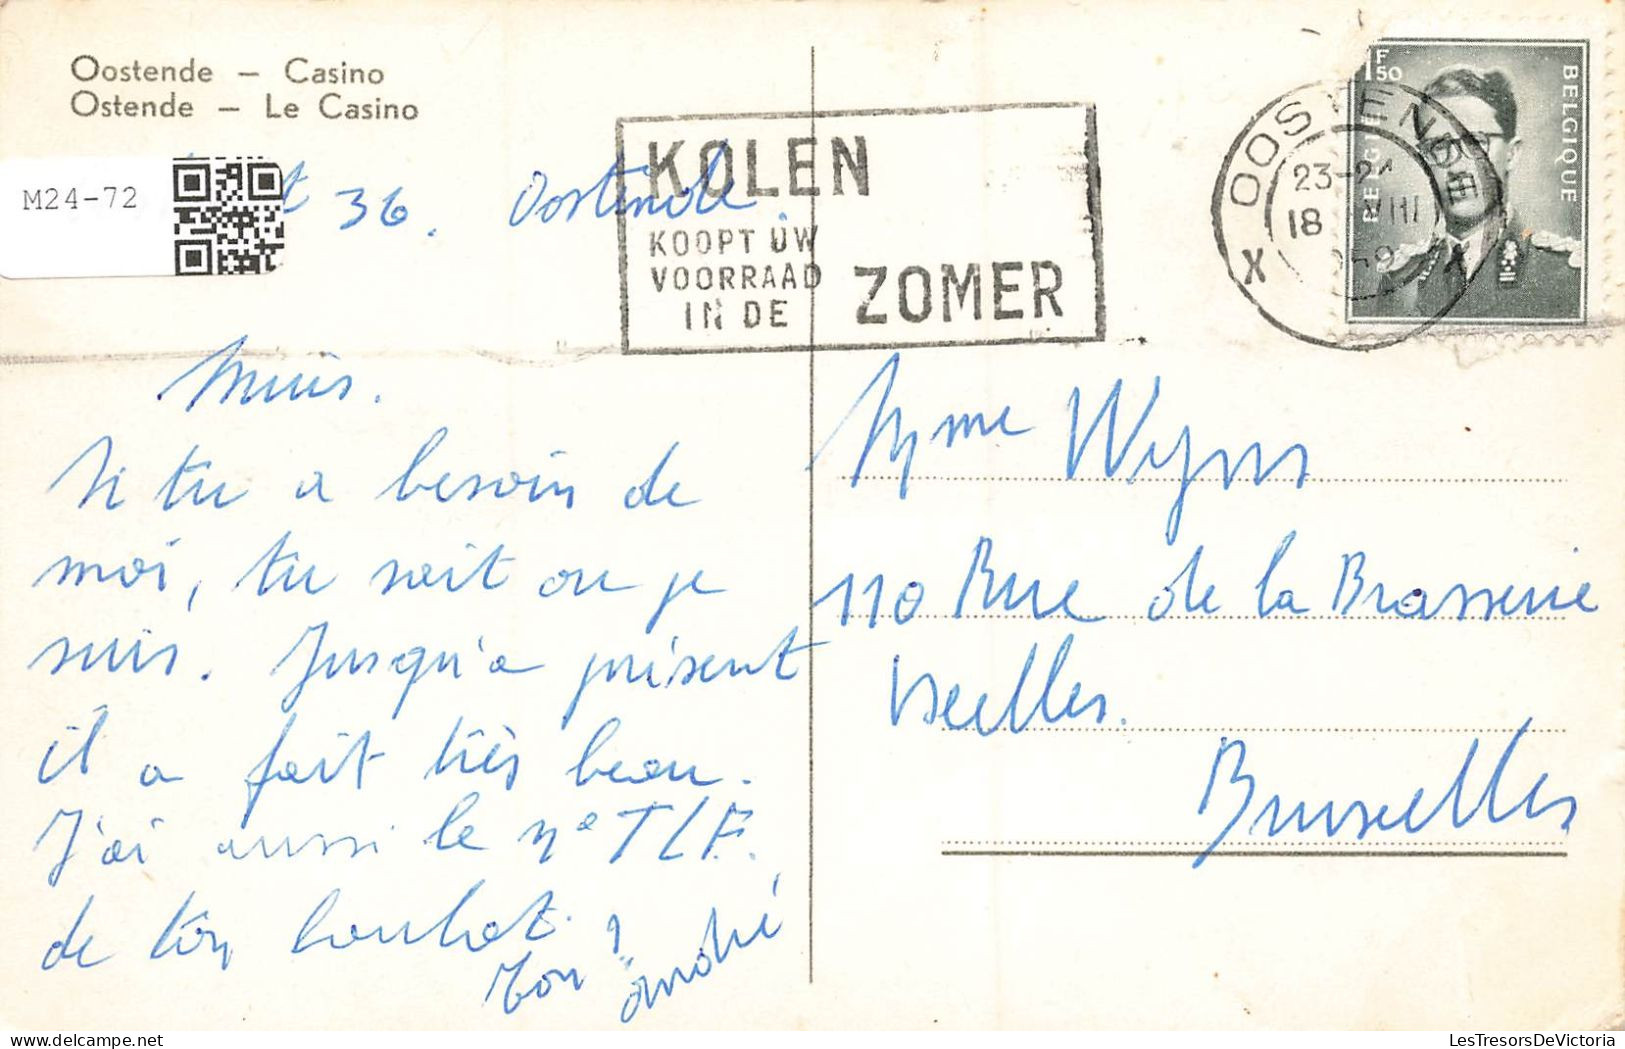 Oostende — Casino
Ostende — Le Casino
M24-72
36. Oostende
KOLEN
KOOPT UW
VOORRAAD
IN DE
ZOMER
OOSTENDE
23-24
18 VIII
1959
X X
1F50
BELGIE
BELGIQUE
Si tu a besoin de
moi, tu sait ou je
suis. Jusqu'a présent
il a fait très beau.
J'ai aussi le n° TLF.
de ton
Ton
André
Mme Wyns
110 Rue de la Brasserie
Ixelles.
Bruxelles
LesTresorsDeVictoria